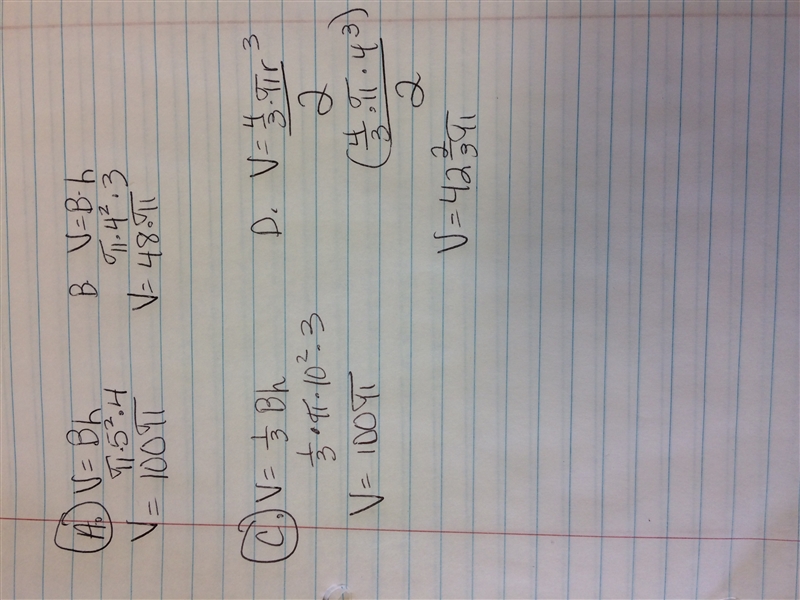 A. V = Bh
π·5²·4
V = 100π
B V = B·h
π·4²·3
V = 48·π
C. V = 1/3 Bh
1/3·π·10²·3
V = 100π
D. V = 4/3·πr³
2
(4/3·π·4³)
2
V = 42 2/3 π